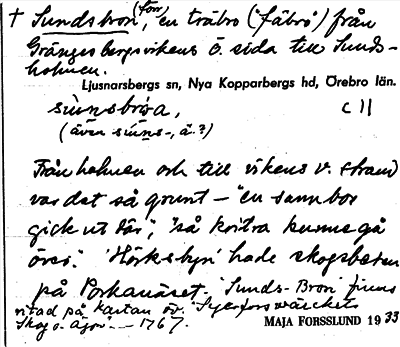 † Sundsbron (förr), en träbro ("fäbro") från
Grängesbergsvikens ö. sida till Sunds-
holmen.
Ljusnarsbergs sn, Nya Kopparbergs hd, Örebro län.
c 11
(även
Från holmen och till vikens v. strand
var det så grunt – "en sann bor
gick ut där", "så kritra kunne gå
över." 'Hörksbyn' hade skogsbeten
på Porkanäset. 'Sunds-Bron' finns
ritad på kartan öv.
Skog o. Ägor" — 1767.
MAJA FORSSLUND 1933